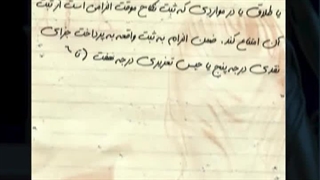 یا طلاق یا در مواردی که ثبت نکاح موقت الزامی است از ثبت
آن امتناع کند. ضمن الزام به ثبت واقعه به پرداخت جزای
نقدی درجه پنج یا حبس تعزیری درجه هفت